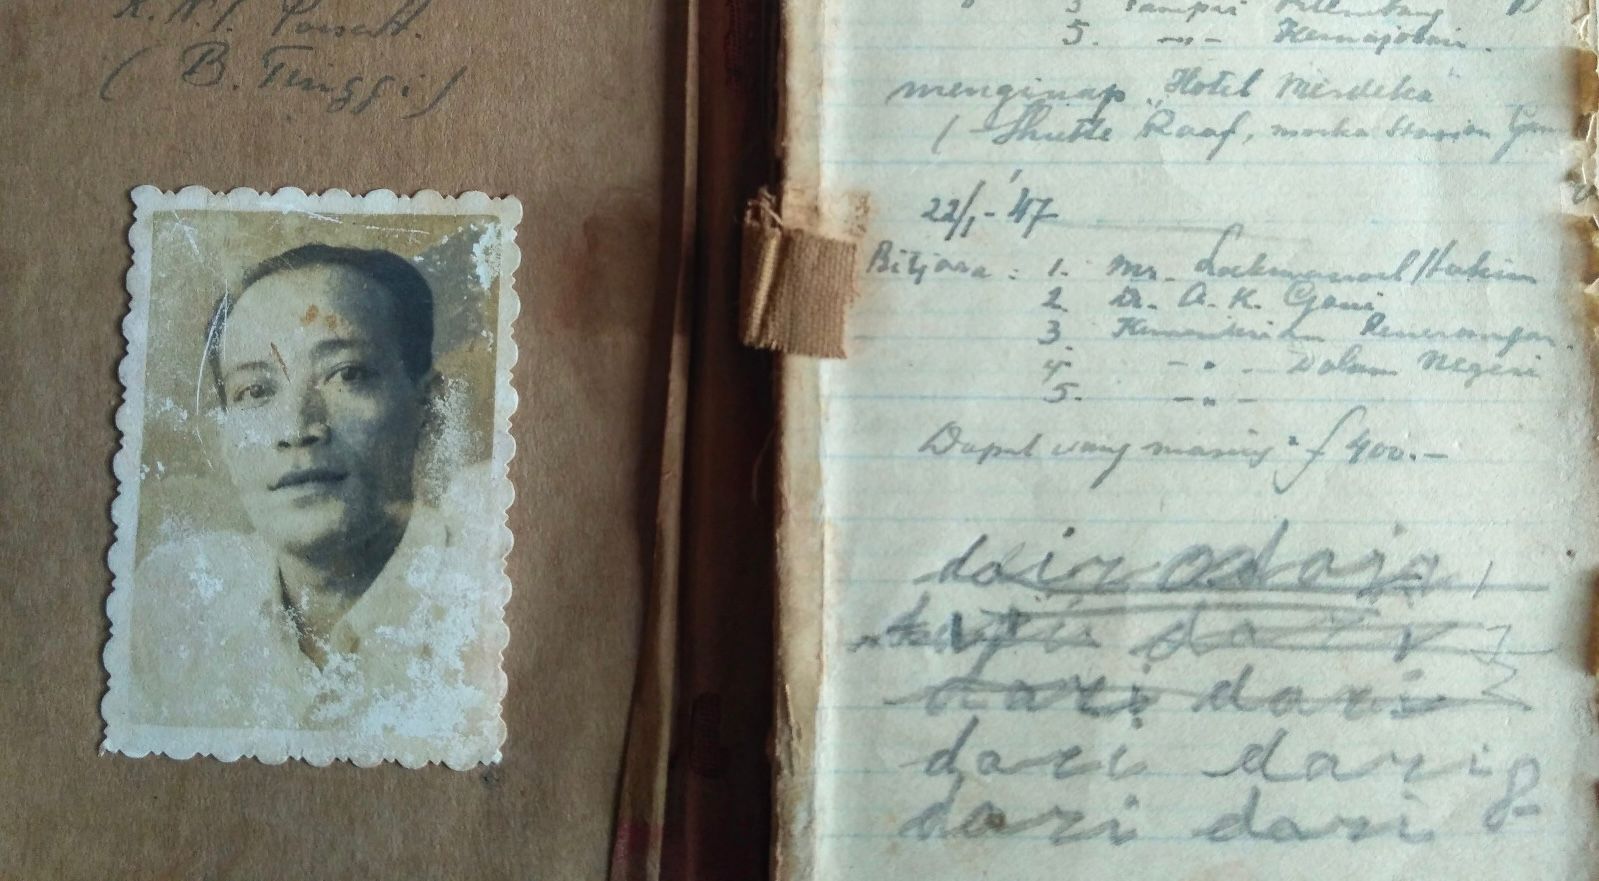 K.N.I. Pusat.
( B. Tinggi )
3 Sampai Palembang
5. -"- Kemajoran.
menginap "Hotel Merdeka"
( Shutte Raaf, muka Stasion
22/1-'47
Bitjara : 1. Mr. Loekmanoel Hakim
2. Dr. A. K. Gani
3. Kementerian Penerangan.
4. -"- Dalam Negeri
5. -"-
Dapat uang masing² f 400.-
dari
dari dari
dari dari
dari dari